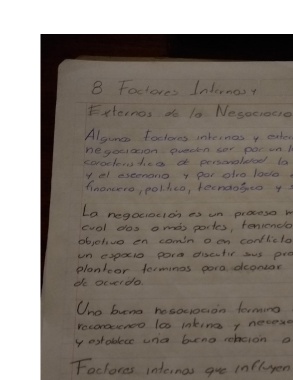 8 Factores Internos y
Externos de la Negociacio
Algunos factores internos y exter
negociacion pueden ser por un l
caracteristicas de personalidad la
y el escenario y por otro lado
financiero, politico, tecnologico y s
La negociación es un proceso
cual dos o más partes, teniendo
objetivo en común o en conflicto
un espacio para discutir sus pro
plantear terminos para alcanzar
de acuerdo.
Una buena negociación termina
reconociendo los
y establece una buena relación a
Factores internos que influyen